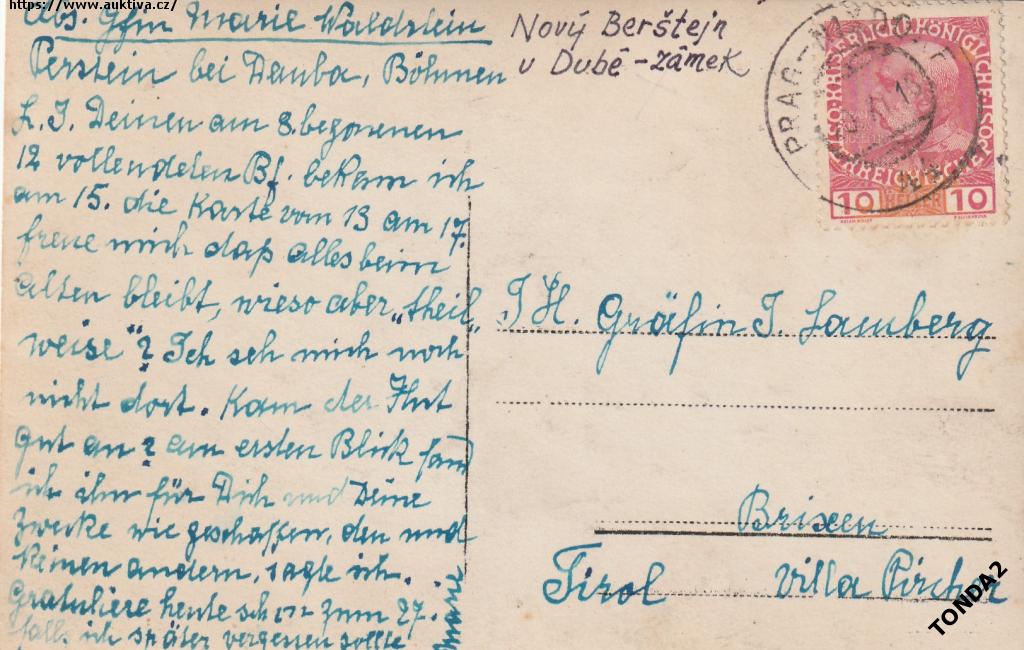 https://www.auktiva.cz/
Abs. Gfin Marie Waldstein
Perstein bei Dauba, Böhmen
L. I. Deinen am 8. begonenen
12 vollendeten Bf. bekam ich
am 15. die Karte vom 13 am 17.
freue mich daß alles beim
Alten bleibt, wieso aber „theil„
weise"? Ich seh mich noch
nicht dort. Kam der Hut
gut an? am ersten Blick fand
ich ihn für Dich und Deine
Zwecke wie geschaffen, den und
keinen andern, sagte ich.
Gratuliere heute schon zum 27.
falls ich später vergessen sollte
Marie
Nový Berštejn
u Dubé - zámek
PRAG
10 HELLER 10
I. H. Gräfin I. Lamberg
Brixen
Tirol Villa Pircher
TONDA2